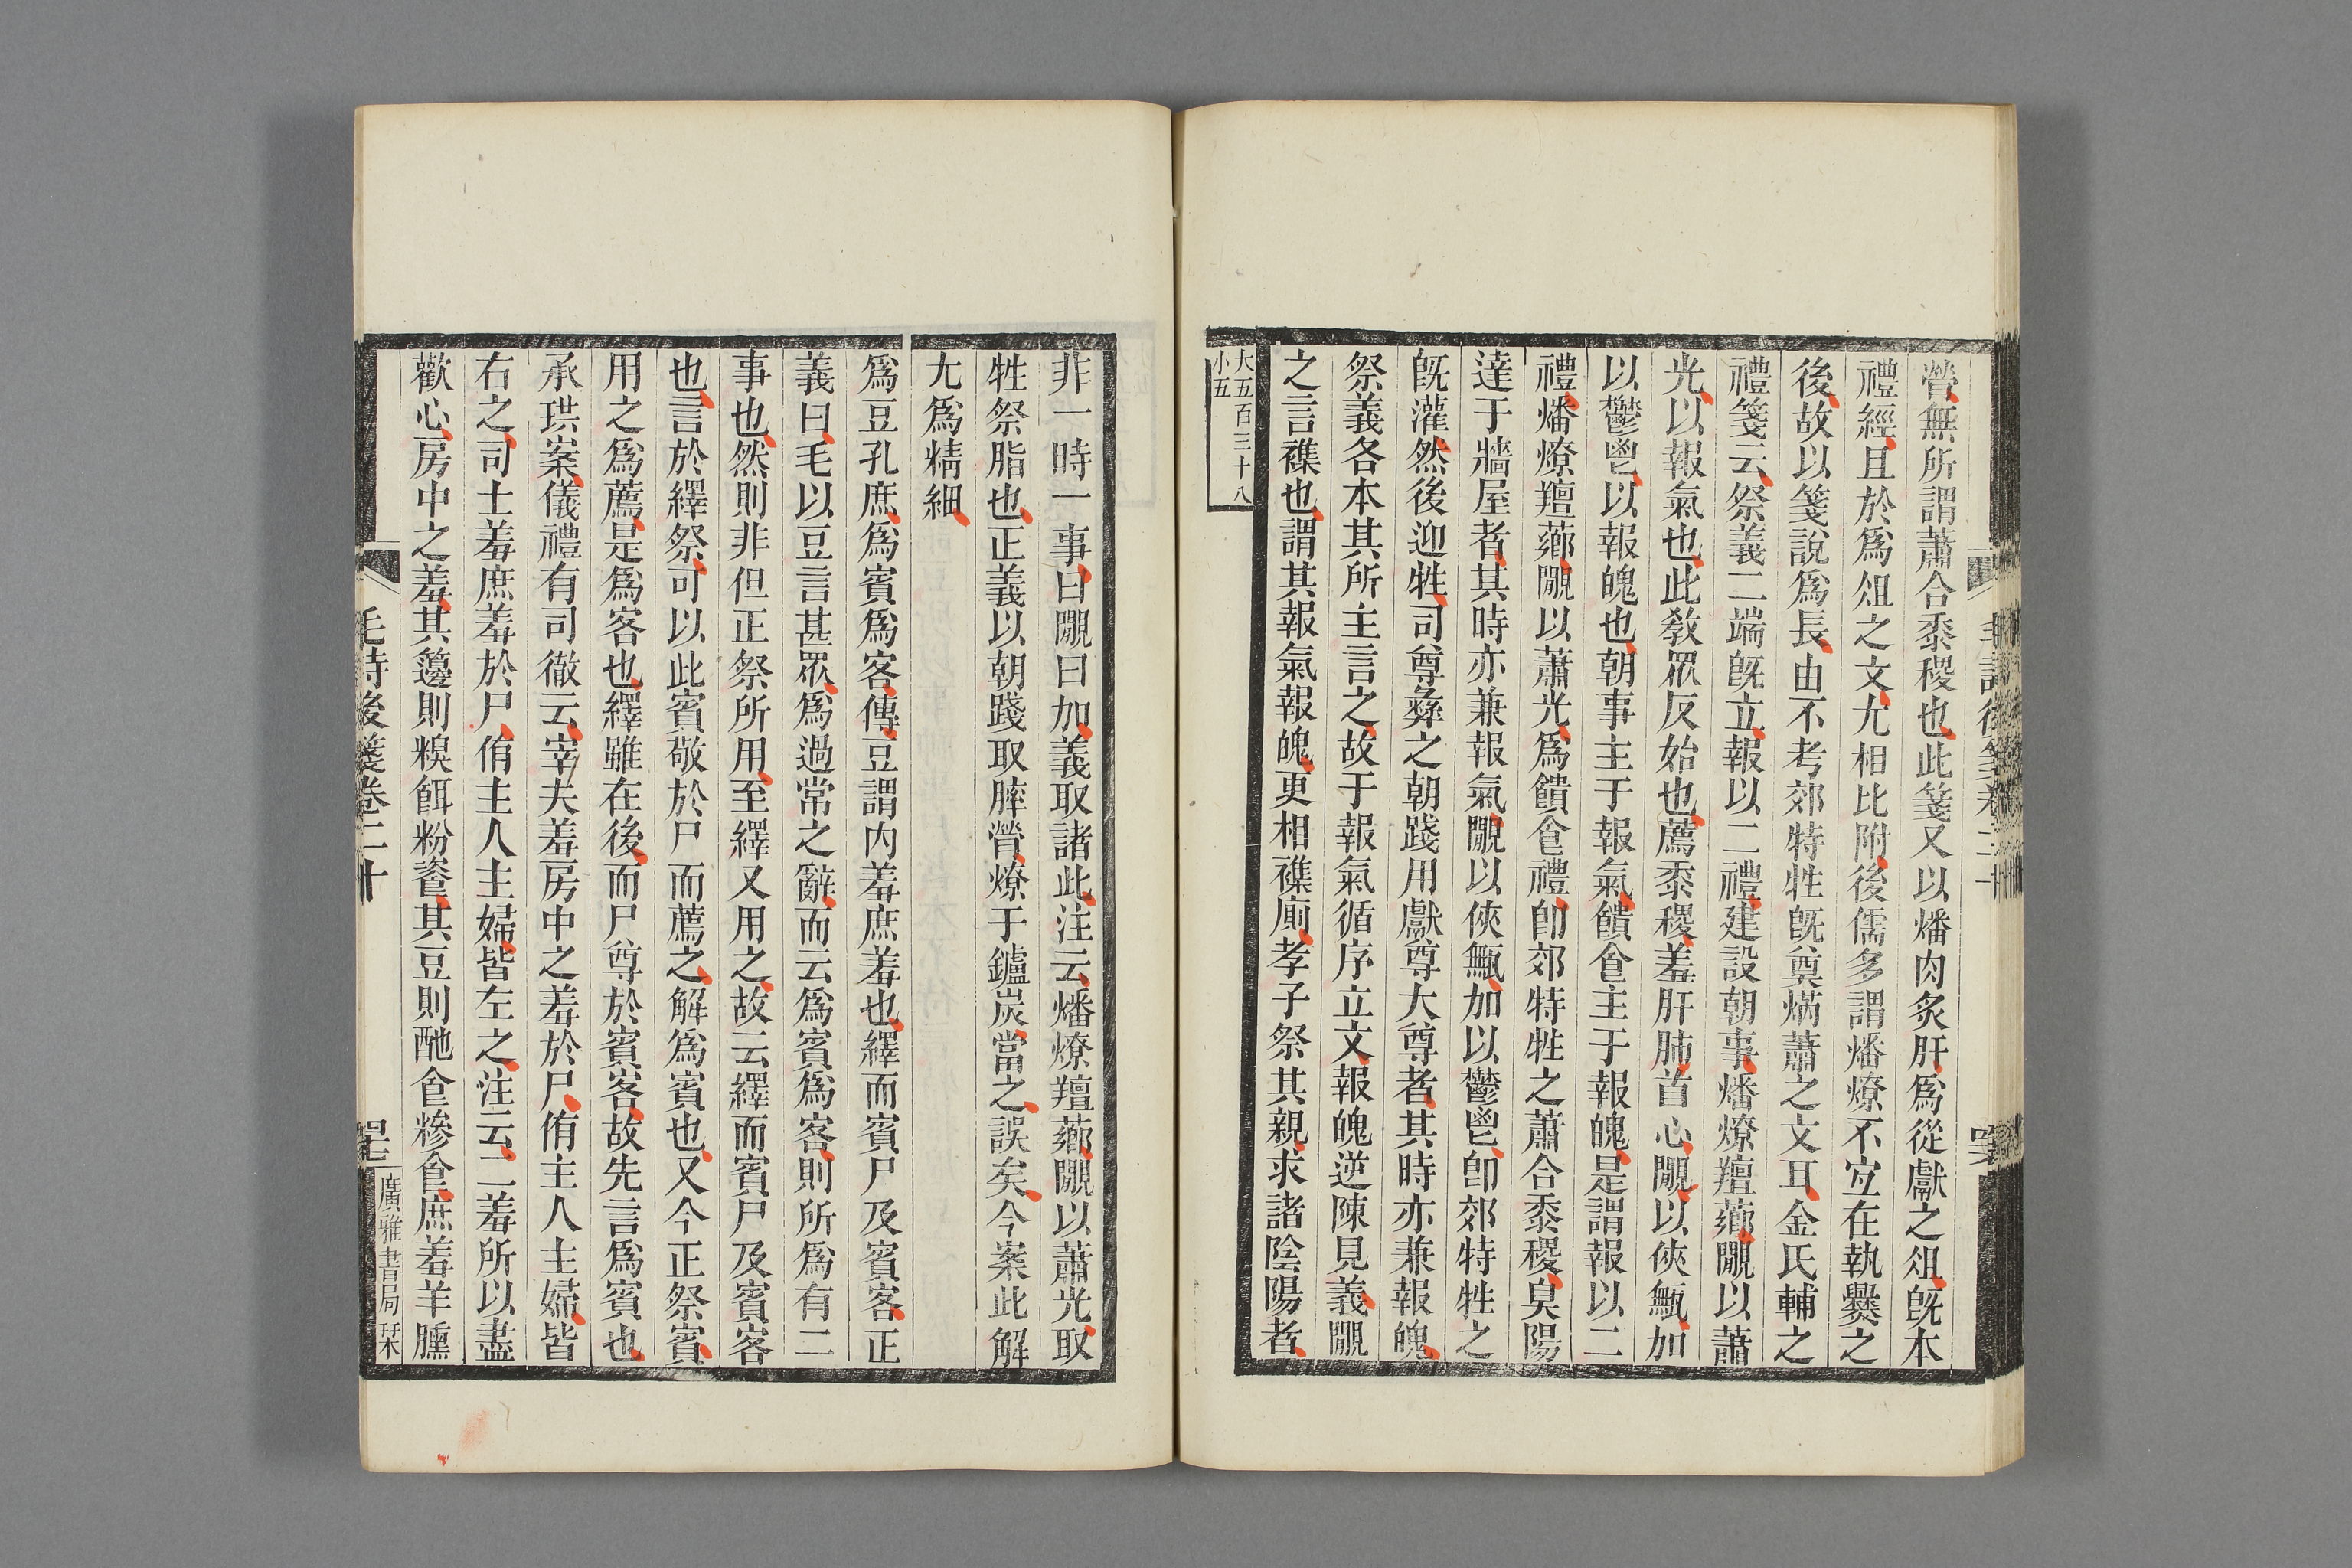 膋無所謂蕭合黍稷也此箋又以燔肉炙肝爲從獻之俎旣本
禮經且於爲俎之文尤相比附後儒多謂燔燎不宜在執爨之
後故以箋說爲長由不考郊特牲旣奠焫蕭之文耳金氏輔之
禮箋云祭義二端旣立報以二禮建設朝事燔燎羶薌覵以蕭
光以報氣也此敎眾反始也薦黍稷羞肝肺首心覵以俠甒加
以鬱鬯以報魄也朝事主于報氣饋食主于報魄是謂報以二
禮燔燎羶薌覵以蕭光爲饋食禮卽郊特牲之蕭合黍稷臭陽
達于牆屋者其時亦兼報氣覵以俠甒加以鬱鬯卽郊特牲之
旣灌然後迎牲司尊彝之朝踐用獻尊大尊者其時亦兼報魄
祭義各本其所主言之故于報氣循序立文報魄逆陳見義覵
之言襍也謂其報氣報魄更相襍廁孝子祭其親求諸陰陽者
大五百三十八
小五
非一時一事曰覵曰加義取諸此注云燔燎羶薌覵以蕭光取
牲祭脂也正義以朝踐取膟膋燎于鑪炭當之誤矣今案此解
尤爲精細
爲豆孔庶爲賓爲客傳豆謂內羞庶羞也繹而賓尸及賓客正
義曰毛以豆言甚眾爲過常之辭而云爲賓爲客則所爲有二
事也然則非但正祭所用至繹又用之故云繹而賓尸及賓客
也言於繹祭可以此賓敬於尸而薦之解爲賓也又今正祭賓
用之爲薦是爲客也繹雖在後而尸尊於賓客故先言爲賓也
承珙案儀禮有司徹云宰夫羞房中之羞於尸侑主人主婦皆
右之司士羞庶羞於尸侑主人主婦皆左之注云二羞所以盡
歡心房中之羞其籩則糗餌粉餈其豆則酏食糝食庶羞羊臐
毛詩後箋卷二十
廣雅書局栞